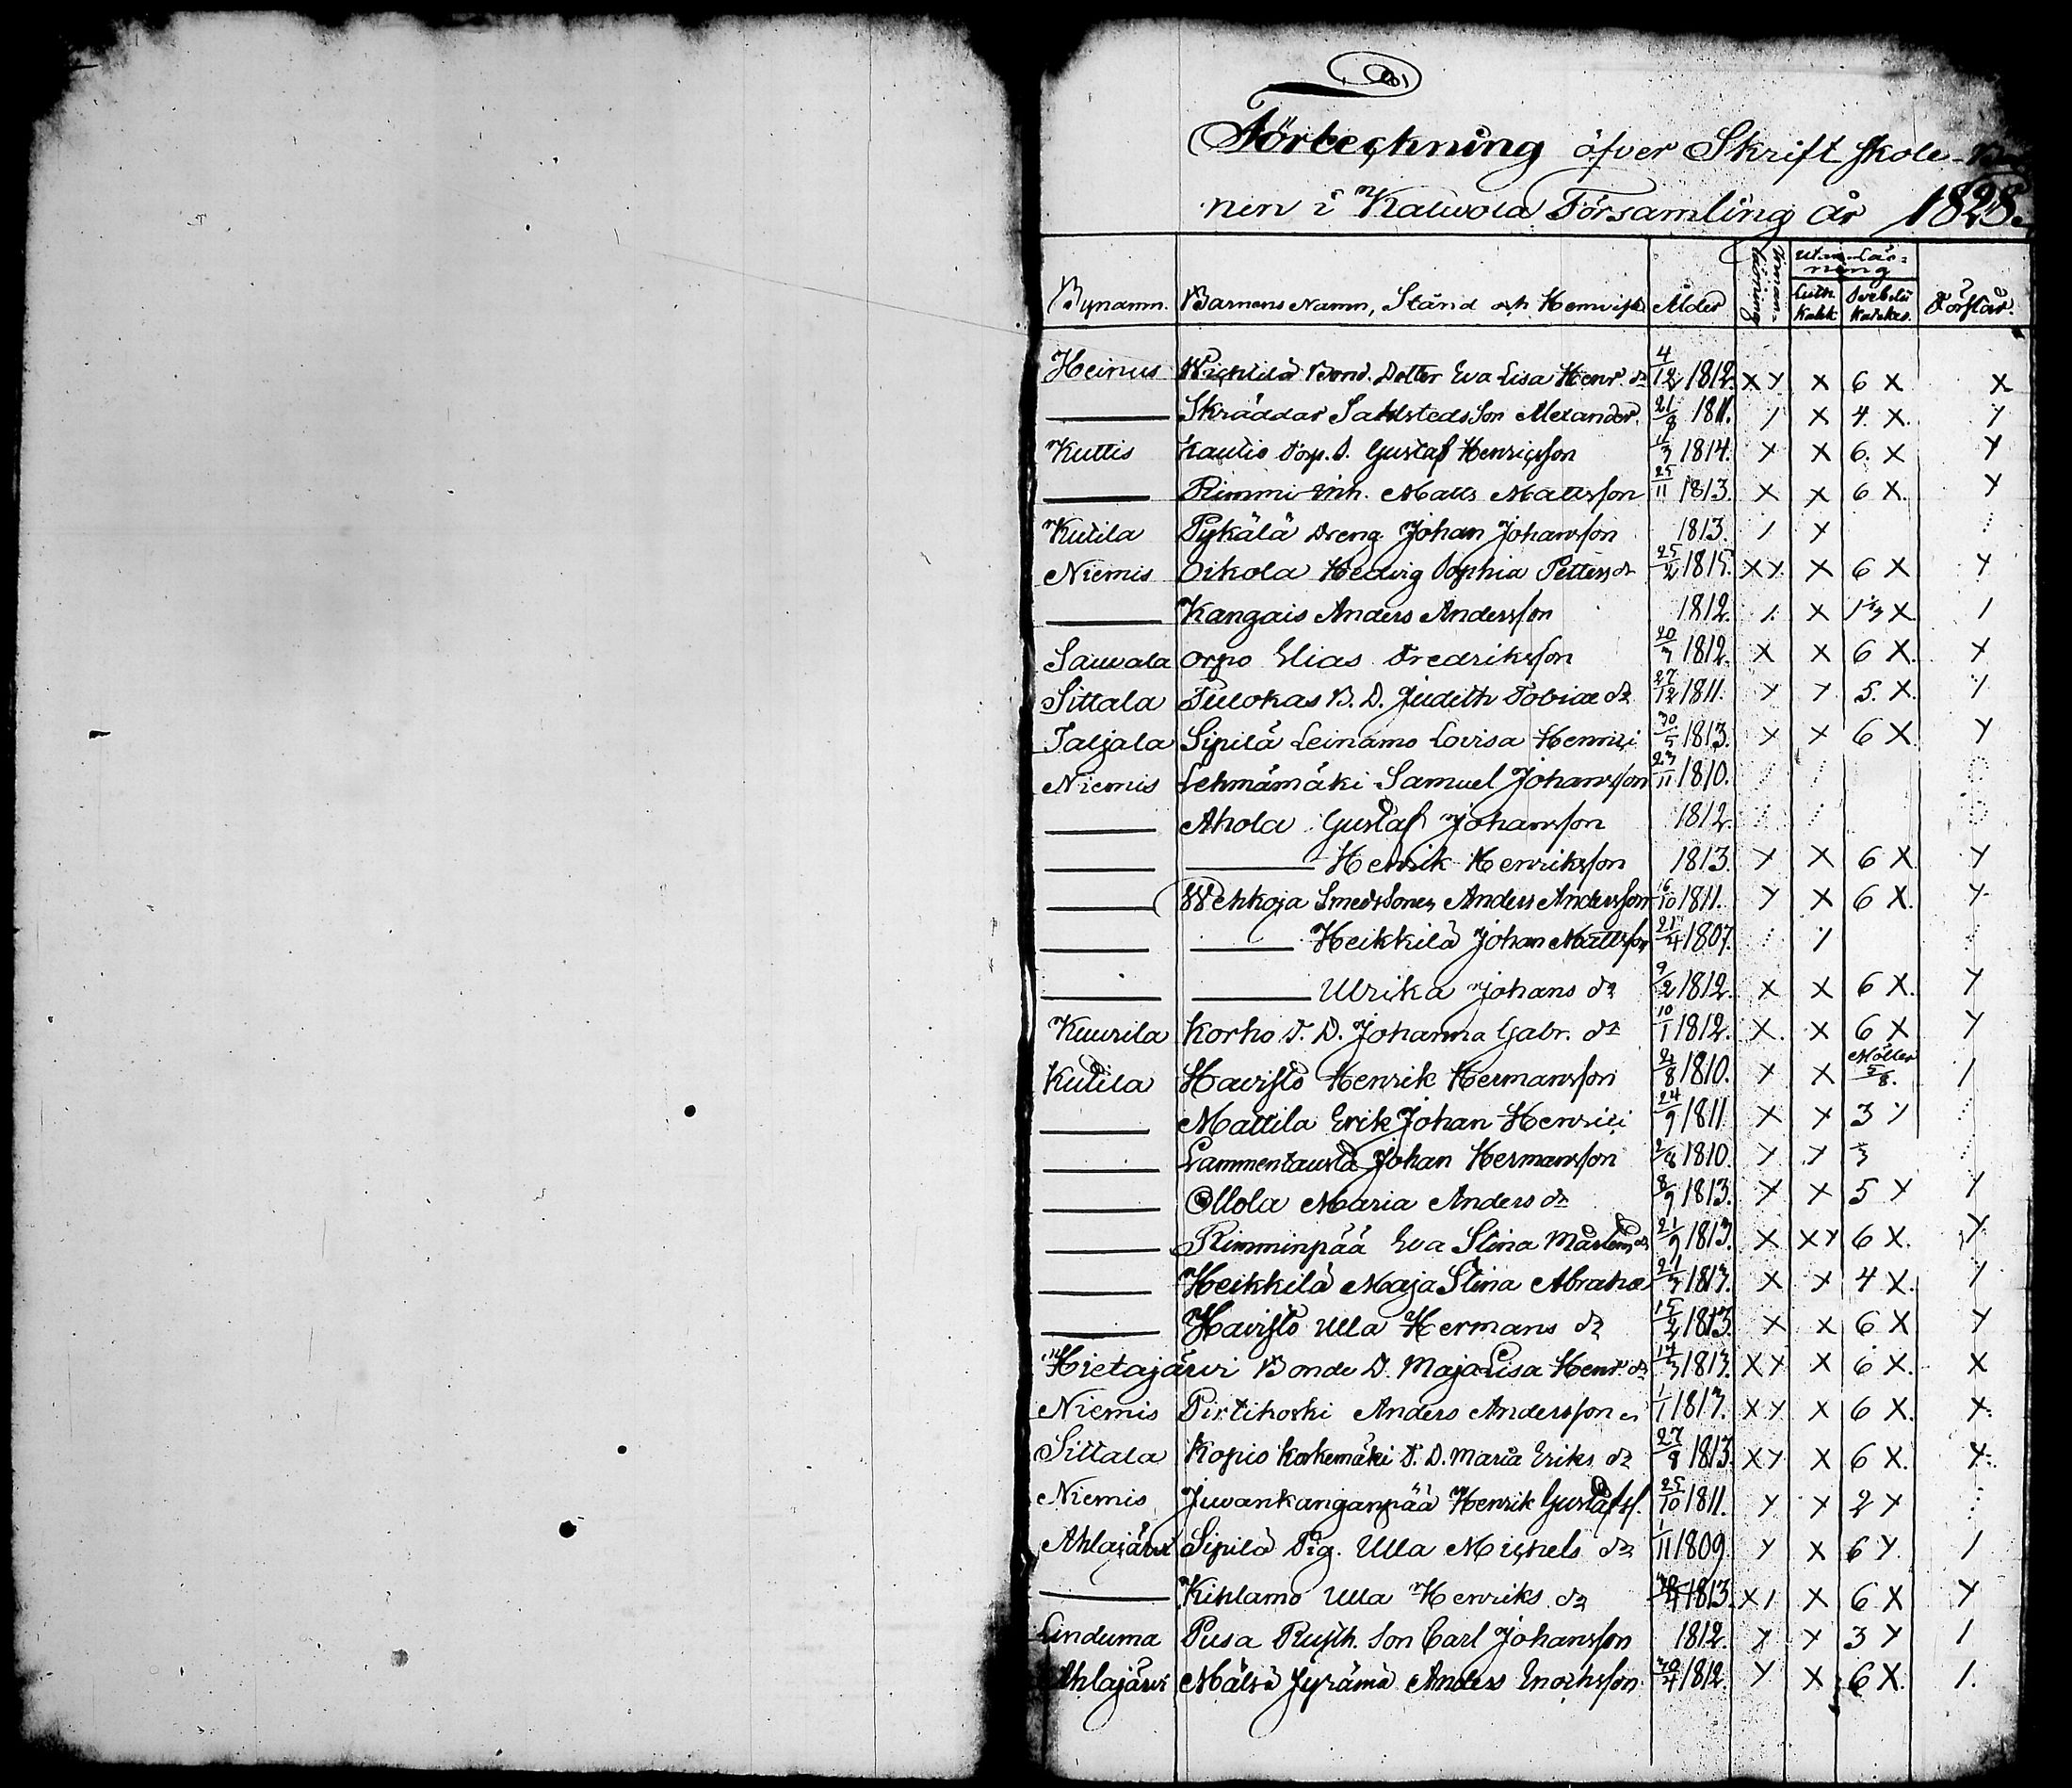 Förteckning öfver Skrift skole-
nen i Kalwola Församling år 1828.
Bynamn. Barnens Namn, Stånd och Hemvist Ålder Innan-läsning Utan-läs-ning Luth. Katek Svebelii Katekes. Förstår.
Heinus Wichtilä Bond. Dotter Eva Lisa Henr. dr 4/12 1812. XY X 6 X X
—— Skräddar Sahlsteds Son Alexander. 21/8 1811. / X 4. X. Y
Kuttis Kautio Torp. S. Gustaf Henricsson 11/3 1814. Y X 6. X Y
—— Rimmi Inh. Matts Mattsson 25/11 1813. X X 6 X. Y
Kutila Pykälä Dreng Johan Johansson 1813. / X /
Niemis Oikola Hedvig Sophia Petters dr 25/2 1815. XY. X 6 X Y
—— Kangais Anders Andersson 1812. /. X X /
Sauvala Orpo Elias Fredriksson 20/7 1812. X X 6 X. X
Sittala Tulokas B. D. Judith Tobiæ dr 27/12 1811. Y Y 5. X. /
Taljala Sipilä Leinamo Lovisa Henrici 30/5 1813. X X 6 X. Y
Niemis Lehmämäki Samuel Johansson 23/11 1810. / /
—— Ahola Gustaf Johansson 1812. / /
—— —— Henrik Henriksson 1813. Y X 6 X Y
—— Wehkoja Smedssonen Anders Andersson 16/10 1811. Y X 6 X. Y
—— —— Heikkilä Johan Mattsson 21/4 1807. / /
—— —— Ulrika Johans dr 9/2 1812. X X 6 X. Y
Kuurila Korho T. D. Johanna Gabr. dr 10/1 1812. X. X 6 X Y
Kutila Havisto Henrik Hermansson 2/8 1810. Y X Möller 5/8. /
—— Mattila Erik Johan Henrici 24/9 1811. X X 3 Y /
—— Lammentausta Johan Hermansson 2/8 1810. Y Y 3 /
—— Ollola Maria Anders dr 8/9 1813. Y X 5 Y Y
—— Rimminpää Eva Stina Mårtens dr 21/9 1813. X XY 6 X. Y
—— Heikkilä Maja Stina Abrahæ 21/7 1813. X X 4 X. /
—— Havisto Ulla Hermans dr 15/2 1813. X X 6 X Y
Hietajärvi Bonde D. Maja Lisa Henr. dr 17/3 1813. XY X 6 X. X
Niemis Pirtikoski Anders Andersson 1/1 1813. XY X 6 X. X
Sittala Kopis Korkemäki T. D. Maria Eriks dr 27/8 1813. XY X 6 X. Y
Niemis Juvankanganpää Henrik Gustafss. 25/10 1811. Y X 2 Y
Ahlajärvi Sipilä Pig. Ulla Michels dr 1/11 1809. Y X 6 Y. /
—— Kihlamo Ulla Henriks dr 1813. X/ X 6 X Y
Linduma Pusa Rusth. Son Carl Johansson 1812. Y Y 3 Y /
Ahlajärvi Mälsä Jyrämä Anders Enochsson. 30/4 1812. Y X 6 X. /.